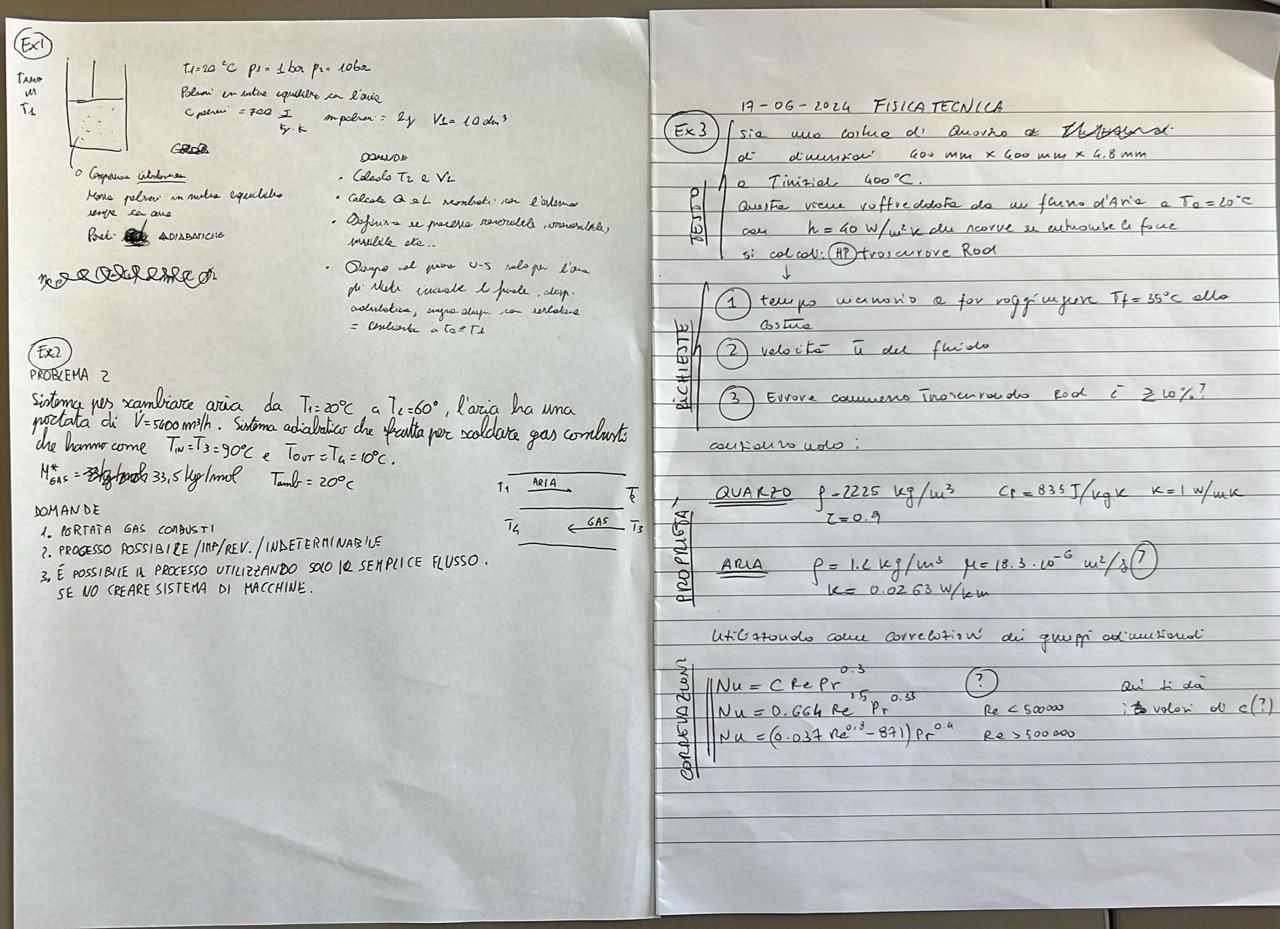 Ex1
t1=20 °C p1=1 bar p2=10bar
Polveri in mutuo equilibrio con l'aria
T1
C polveri = 700 J/kg·K m polveri = 2g V1=10 dm³
Compressione
Massa polveri in mutuo equilibrio
sempre con aria
Pareti ADIABATICHE
DOMANDE
• Calcolo T2 e V2
• Calcolo Q e L scambiati con l'esterno
• Definire se processo reversibile, irreversibile,
impossibile etc..
• Disegno sul piano U-S solo per l'aria
gli stati iniziale e finale, disp.
adiabatica, energia disp. con serbatoio
= ambiente a T0=T1
Ex2
PROBLEMA 2
Sistema per scambiare aria da T1=20°C a T2=60°, l'aria ha una
portata di V̇=5400 m³/h. Sistema adiabatico che sfrutta per scaldare gas combusti
che hanno come TIN=T3=90°C e TOUT=T4=10°C.
M*GAS = 33,5 kg/mol Tamb=20°C
T1 ARIA T2
T4 GAS T3
DOMANDE
1. PORTATA GAS COMBUSTI
2. PROCESSO POSSIBILE/IMP/REV./INDETERMINABILE
3. È POSSIBILE IL PROCESSO UTILIZZANDO SOLO IL SEMPLICE FLUSSO.
SE NO CREARE SISTEMA DI MACCHINE.
17-06-2024 FISICA TECNICA
Ex3
TESTO
sia una lastra di Quarzo
di dimensioni 400 mm x 400 mm x 4.8 mm
a Tiniziale 400°C.
Questa viene raffreddata da un flusso d'Aria a T0=20°C
con h=40 W/m²K che scorre su entrambe le facce
si calcoli: HP trascurare Rad
RICHIESTE
1 tempo necessario a far raggiungere Tf=35°C alla
lastra
2 velocità u del fluido
3 Errore commesso trascurando Rad è ≥10%?
considerando:
PROPRIETÀ
QUARZO ρ=2225 kg/m³ Cp=835 J/kgK K=1 W/mK
ε=0.9
ARIA ρ=1.2 kg/m³ μ=18.3·10⁻⁶ m²/s ?
K=0.0263 W/Km
Utilizzando come correlazioni dei gruppi adimensionali
CORRELAZIONI
Nu = C Re Pr^0.3 ? Qui ti dà
Nu = 0.664 Re^.5 Pr^0.33 Re<500000 i valori di c(?)
Nu = (0.037 Re^0.8 - 871) Pr^0.4 Re>500000